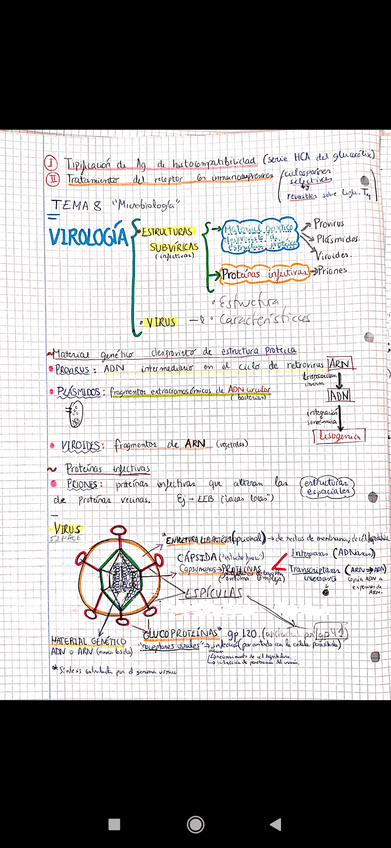 I Tipificación de Ag de histocompatibilidad (serie HCA del glucocálix)
II Tratamiento del receptor con inmunosupresores (ciclosporinas
selectivas
revisables sobre linfo. T4
TEMA 8 "Microbiología"
VIROLOGÍA
ESTRUCTURAS
SUBVÍRICAS
(infectivas)
Material genético
desprovisto de
estructura proteica
Provirus
Plásmidos
Viroides
Proteínas infectivas → Priones
• Estructura
• VIRUS → • Características
~ Material genético desprovisto de estructura proteica
• PROVIRUS: ADN intermediario en el ciclo de retrovirus
ARN
transcripción
inversa
• PLÁSMIDOS: fragmentos extracromosómicos de ADN circular
(bacterias)
ADN
integración
Lisogenia
• VIROIDES: fragmentos de ARN (vegetales)
~ Proteínas infectivas
• PRIONES: proteínas infectivas que alteran las estructuras espaciales
de proteínas vecinas. Ej → EEB ("vacas locas")
- VIRUS
*ENVOLTURA LIPÍDICA (opcional) → de restos de membrana de cél. hospedadora
CÁPSIDA
Capsómeros → PROTEÍNAS
Integrasa (ADNvírico)
Transcriptasa (ARN → ADN)
inversa
copia ADN a
expensas de
ARN.
ESPÍCULAS
GLUCOPROTEÍNAS* gp120 (ancladas por gp41)
"receptores virales" → infección (por contacto con la célula parasitada)
MATERIAL GENÉTICO
ADN o ARN (nunca los dos)
* Síntesis codificada por el genoma vírico